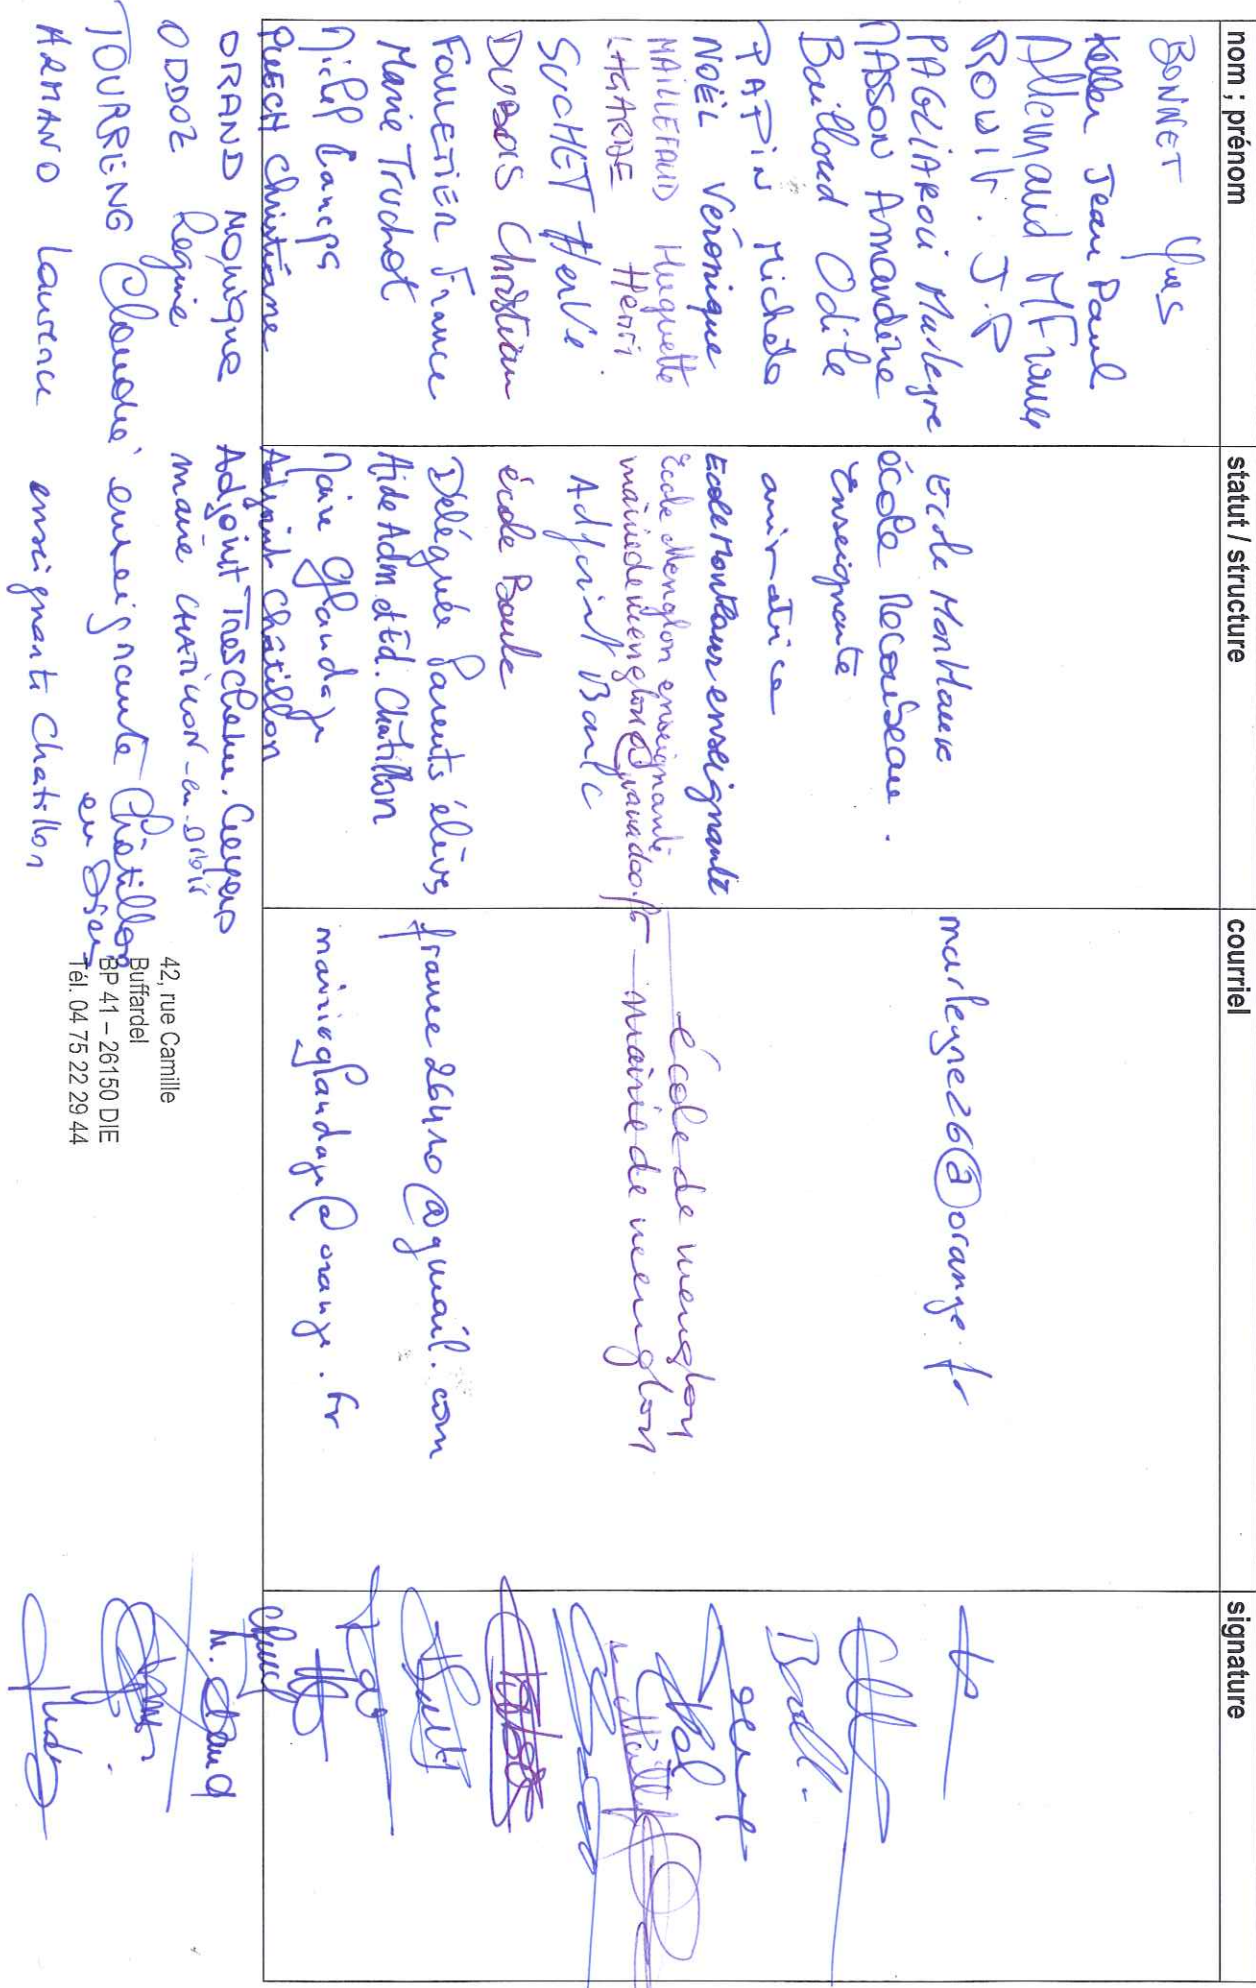 nom ; prénom	statut / structure	courriel	signature
BONNET Yves
Keller Jean Paul
Allemand MFrance
ROUIT. J.P
PAGLIAROLI Marleyne	Ecole Montlaur	marleyne26@orange.fr
MASSON Amandine	école Recoubeau.
Bailloud Odile	Enseignante
PAPIN Michèle	animatrice
NOËL Véronique	Ecole Montlaur enseignante
MAILLEFAUD Huguette	Ecole Menglon enseignante	école de menglon
LAGARDE Henri	mairiedemenglon@wanadoo.fr	mairie de menglon
SUCHET Hervé.	Adjoint Boulc
DUBOIS Christian	école Boulc
FOURETIER France	Déléguée Parents élèves	france26410@gmail.com
Marie Truchot	Aide Adm et Ed. Châtillon
Michel	Maire Glandage	mairieglandage@orange.fr
PUECH Christiane	Adjoint Châtillon
ORAND Monique	Adjoint Treschenu. Creyers	M. Orand
ODDOZ Régine	mairie CHATILLON-en-DIOIS
TOURRENG Claudie	enseignante Châtillon
en Diois
ARMAND Laurence	enseignante Chatillon
42, rue Camille
Buffardel
BP 41 – 26150 DIE
Tél. 04 75 22 29 44